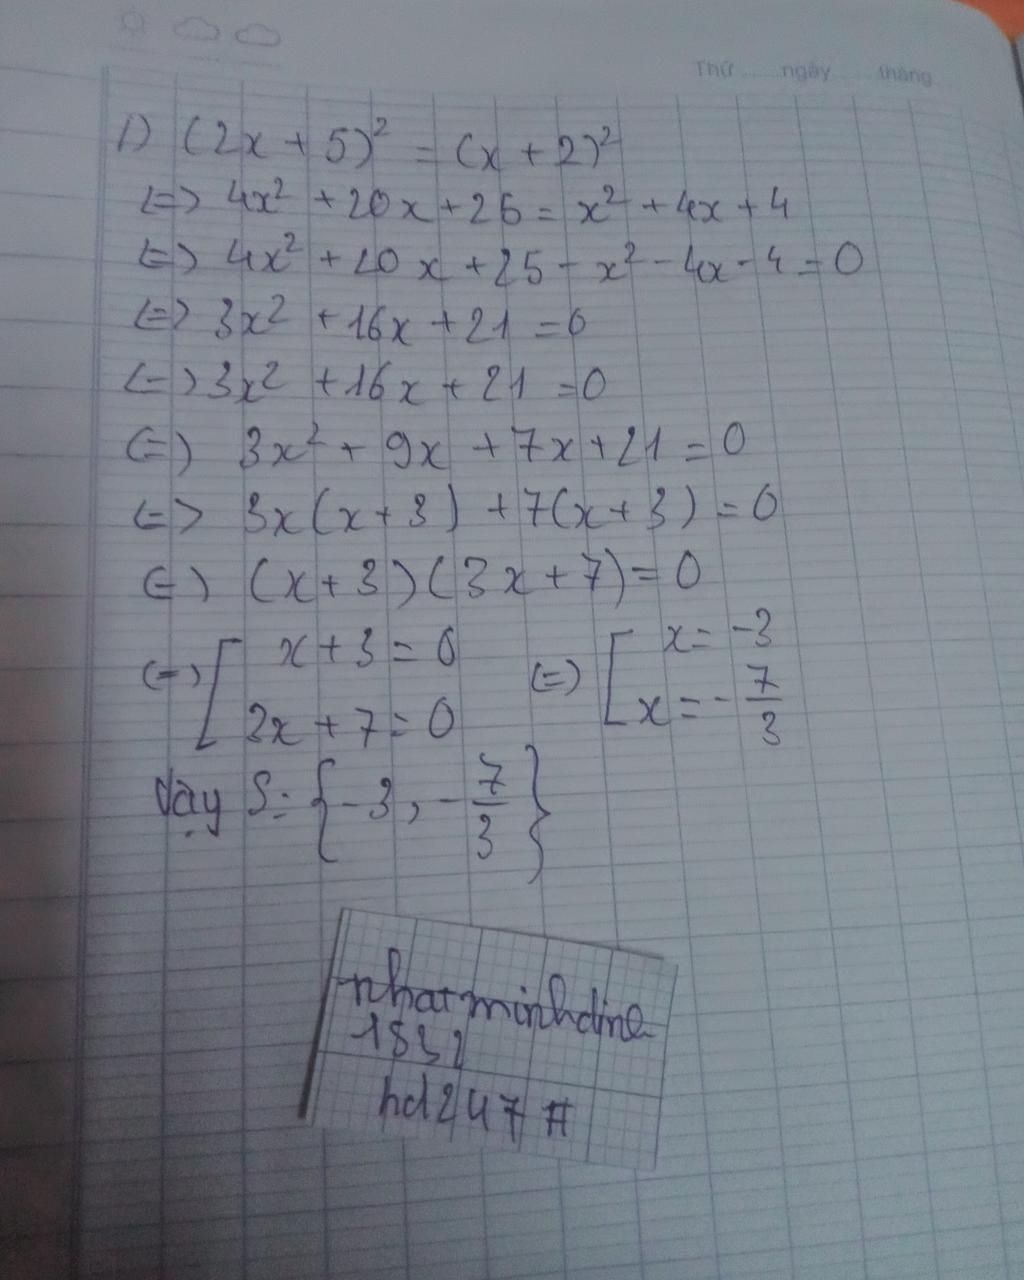 Thứ ngày tháng
1) (2x + 5)² = (x + 2)²
<=> 4x² + 20x + 25 = x² + 4x + 4
<=> 4x² + 20x + 25 - x² - 4x - 4 = 0
<=> 3x² + 16x + 21 = 0
<=> 3x² + 16x + 21 = 0
<=> 3x² + 9x + 7x + 21 = 0
<=> 3x(x + 3) + 7(x + 3) = 0
<=> (x + 3)(3x + 7) = 0
<=> [ x + 3 = 0 <=> [ x = -3
3x + 7 = 0 x = -7/3
Vậy S = {-3, -7/3}
hd247 #